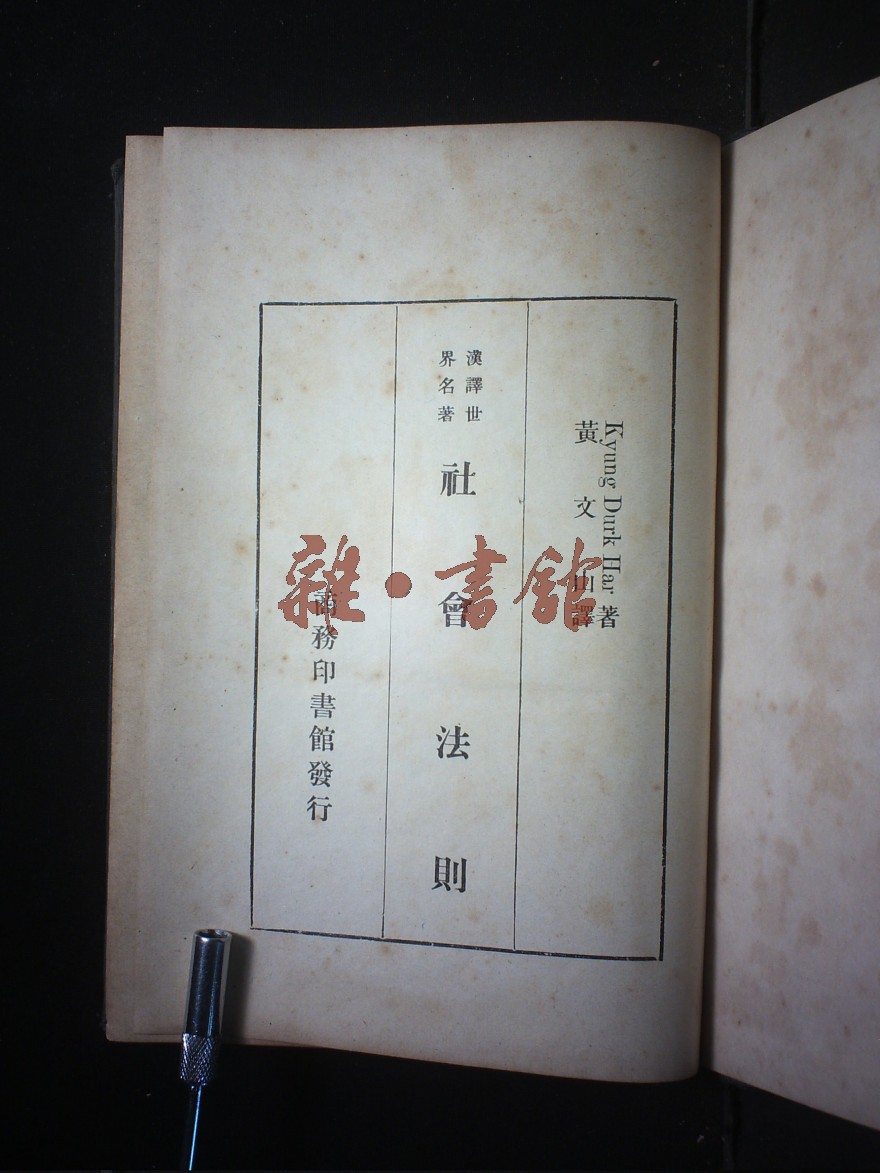 Kyung Durk Har 著
黃文山譯
漢譯世
界名著
社會法則
商務印書館發行
雜·書館